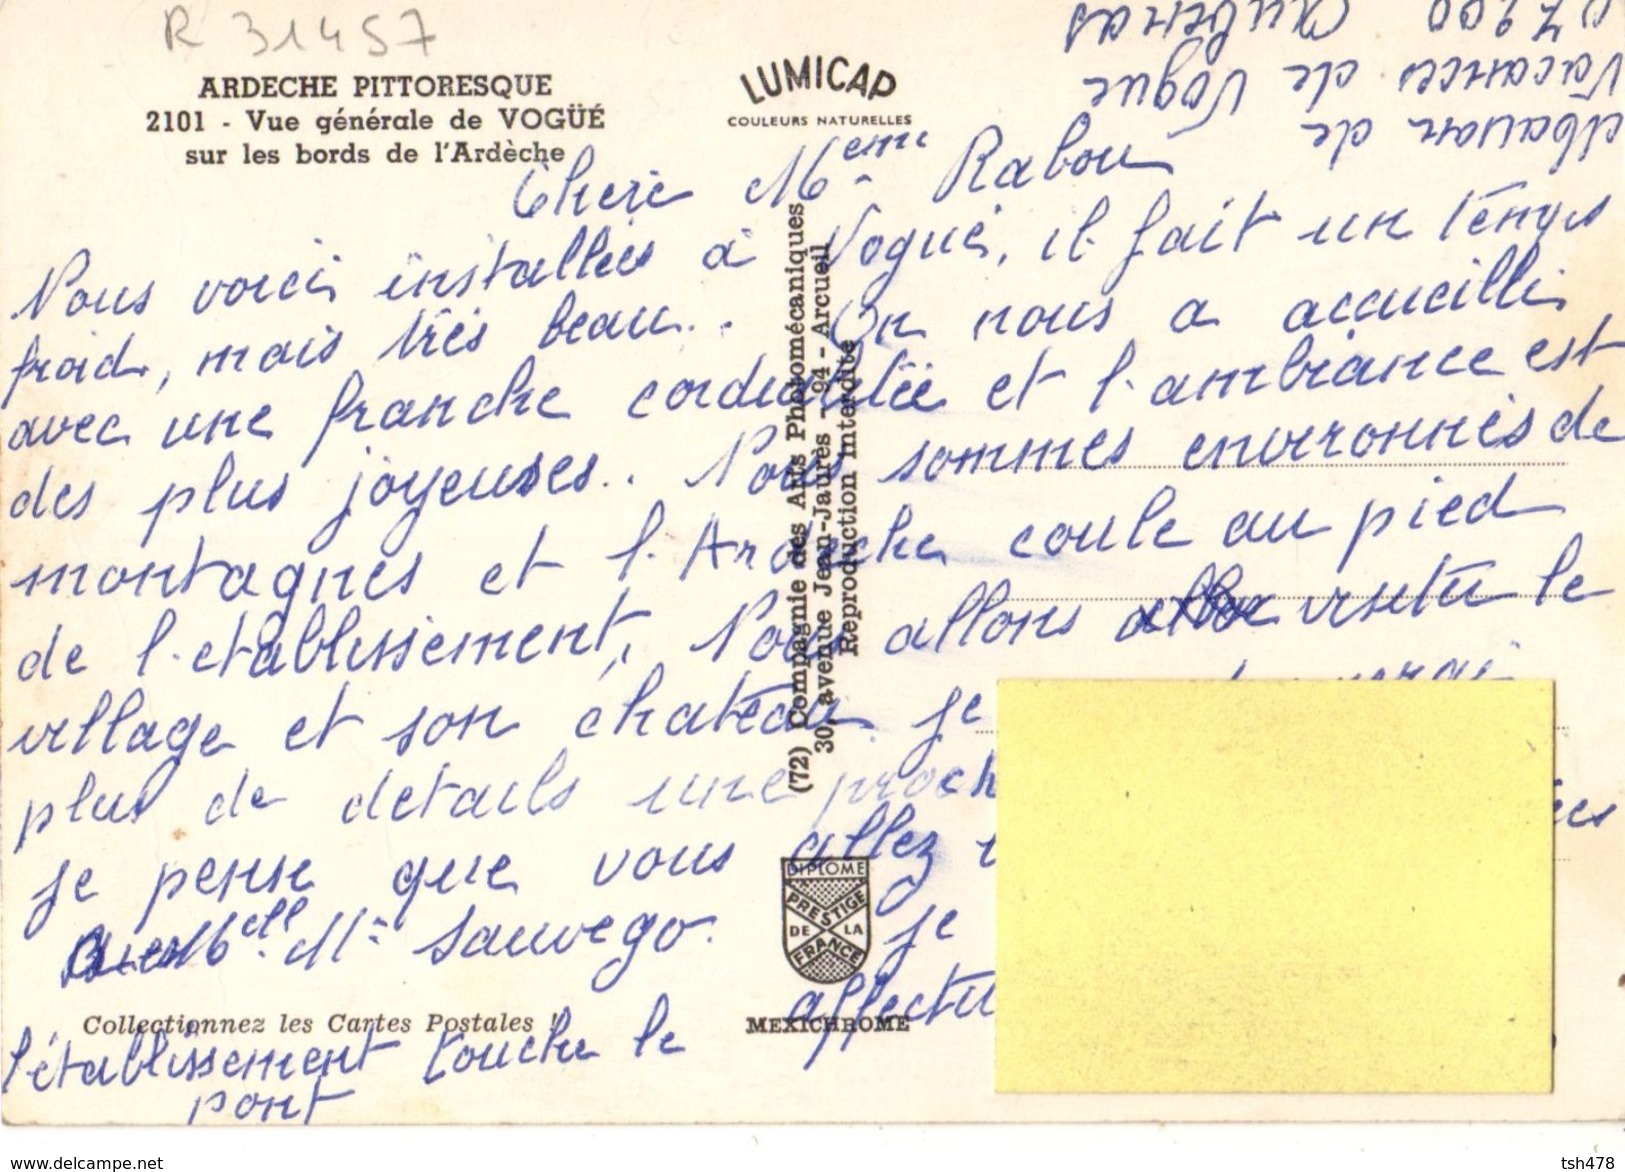 R 31457
ARDECHE PITTORESQUE
2101 - Vue générale de VOGÜÉ
sur les bords de l'Ardèche
LUMICAP
COULEURS NATURELLES
Maison de
Vacances de Vogue
07200 Aubenas
Chere Meme Rabou
Nous voici installées à Vogué, il fait un temps
froid, mais très beau.. On nous a accueilli
avec une franche cordialitée et l'ambiance est
des plus joyeuses.. Nous sommes environnés de
montagnes et l'Ardèche coule au pied
de l'etablissement, Nous allons visiter le
village et son château je
plus de details une proch
je pense que vous allez
Mell. Mr Sauvego. je
affectu
l'établissement touche le
pont
(72) Compagnie des Arts Photomécaniques
30, avenue Jean-Jaurès - 94 - Arcueil
Reproduction interdite
DIPLOME
PRESTIGE
DE LA
FRANCE
Collectionnez les Cartes Postales !
MEXICHROME
www.delcampe.net
tsh478